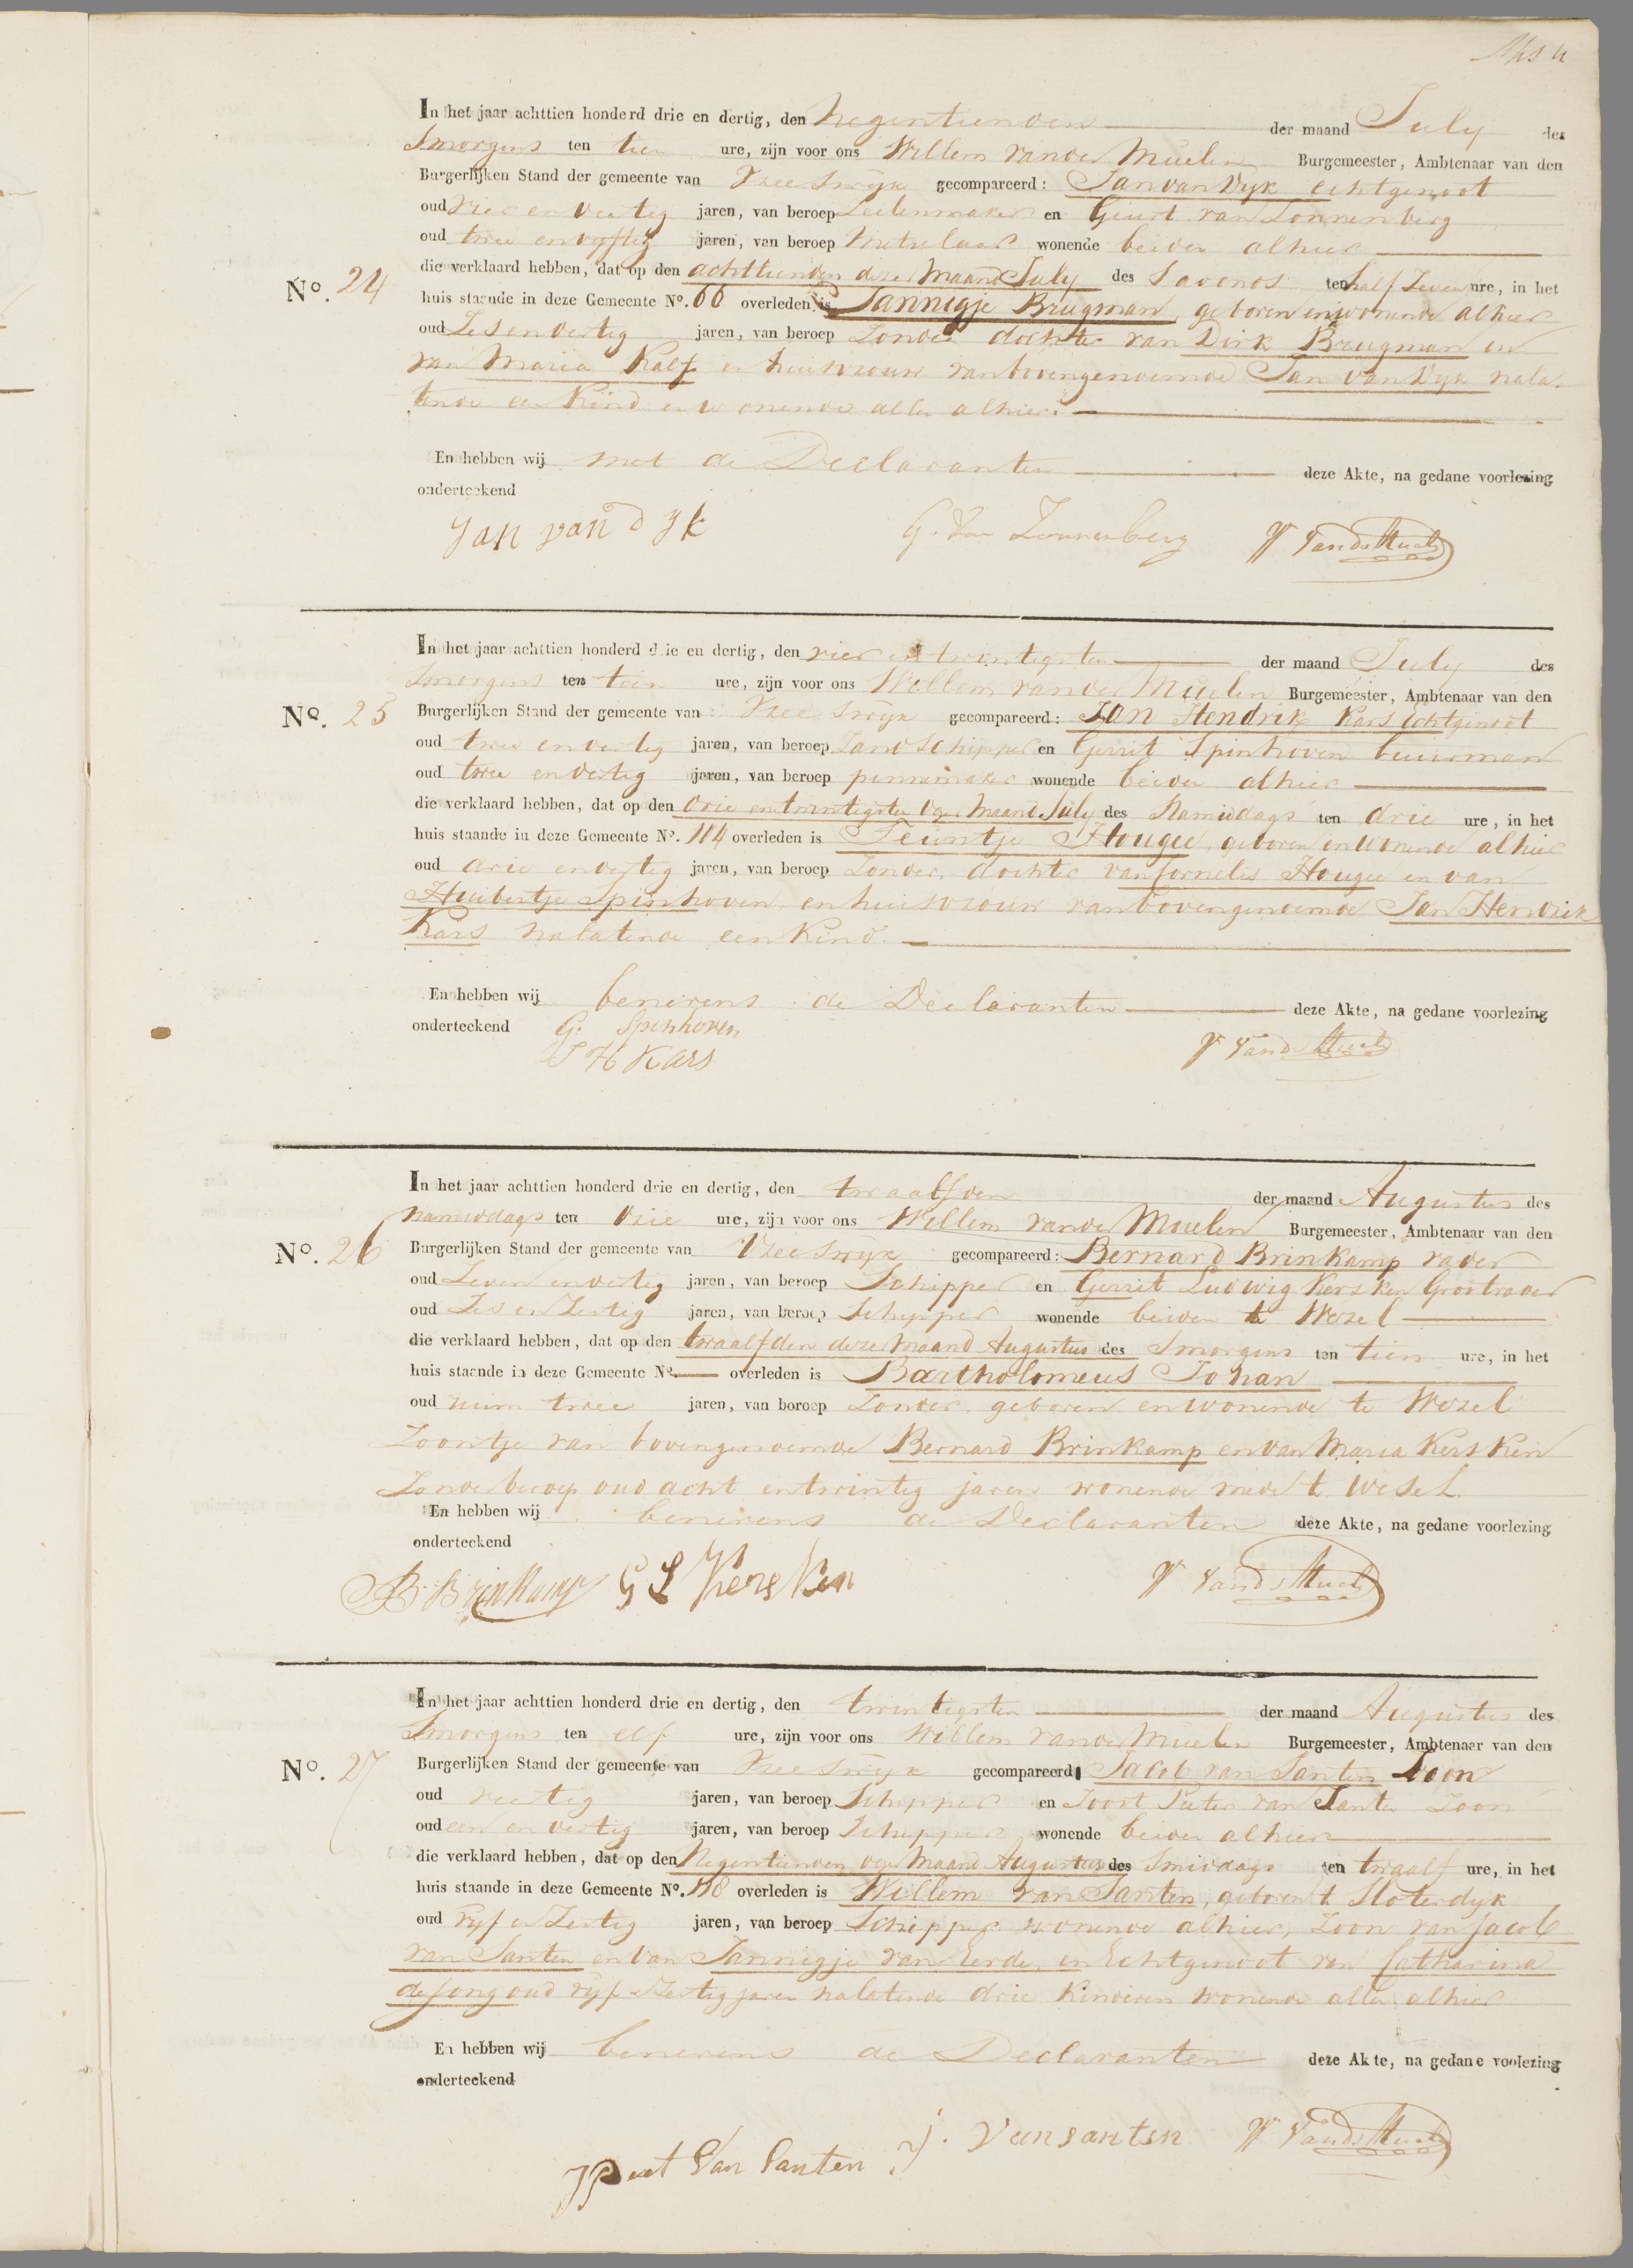 In het jaar achttien honderd drie en dertig, den Negentienden der maand July des
Smorgens ten tien ure, zijn voor ons Willem van der Muelen Burgemeester, Ambtenaar van den
Burgerlijken Stand der gemeente van Vreeswyk gecompareerd: Jan van Dyk echtgenoot
oud vier en veertig jaren, van beroep en Geurt van Zonnenberg
oud twee en vyftig jaren, van beroep Metselaar wonende beiden alhier
die verklaard hebben, dat op den achttienden dezer Maand July des Savonds ten half Zeven ure, in het
No. 24 huis staande in deze Gemeente No. 66 overleden is Jannigje Brugman, geboren en wonende alhier
oud Zes en veertig jaren, van beroep Zonder dochter van Dirk Brugman en
van Maria Kalf en huisvrouw van bovengenoemde Jan van Dyk nala-
tende een Kind en wonende allen alhier.
En hebben wij met de Declaranten deze Akte, na gedane voorlezing
onderteekend
Jan van dyk G. Van Zonnenberg W Van d Muelen
In het jaar achttien honderd drie en dertig, den vier en twintigsten der maand July des
Smorgens ten tien ure, zijn voor ons Willem van der Muelen Burgemeester, Ambtenaar van den
No. 25 Burgerlijken Stand der gemeente van Vreeswyk gecompareerd: Jan Hendrik Kars Echtgenoot
oud twee en veertig jaren, van beroep Zandschipper en Gerrit Spinhoven buurman
oud twee en veertig jaren, van beroep pannemaker wonende beiden alhier
die verklaard hebben, dat op den drie en twintigsten dezer Maand July des Namiddags ten drie ure, in het
huis staande in deze Gemeente No. 114 overleden is Teuntje Hougee, geboren en wonende alhier
oud drie en veertig jaren, van beroep Zonder, dochter van Cornelis Hougee en van
Huibertje Spinhoven en huisvrouw van bovengenoemde Jan Hendrik
Kars nalatende een Kind.
En hebben wij benevens de Declaranten deze Akte, na gedane voorlezing
onderteekend G. Spinhoven
J H Kars W Van d Muelen
In het jaar achttien honderd drie en dertig, den twaalfden der maand Augustus des
namiddags ten drie ure, zijn voor ons Willem van der Muelen Burgemeester, Ambtenaar van den
No. 26 Burgerlijken Stand der gemeente van Vreeswyk gecompareerd: Bernard Brinkamp vader
oud Zeven en veertig jaren, van beroep Schipper en Gerrit Ludwig Kersken Grootvader
oud Zes en Zestig jaren, van beroep Schipper wonende beiden te Wezel
die verklaard hebben, dat op den twaalfden dezer maand Augustus des Smorgens ten tien ure, in het
huis staande in deze Gemeente No. overleden is Bartholomeus Johan
oud ruim twee jaren, van beroep Zonder, geboren en wonende te Wezel
Zoontje van bovengenoemde Bernard Brinkamp en van Maria Kersken
Zonder beroep oud acht en twintig jaren wonende mede te Wesel.
En hebben wij benevens de Declaranten deze Akte, na gedane voorlezing
onderteekend
B. Brinkamp G L Kersken W Van d Muelen
In het jaar achttien honderd drie en dertig, den twintigsten der maand Augustus des
Smorgens ten elf ure, zijn voor ons Willem van der Muelen Burgemeester, Ambtenaar van den
No. 27 Burgerlijken Stand der gemeente van Vreeswyk gecompareerd: Jacob van Santen Zoon
oud veertig jaren, van beroep Schipper en Joost Pieter van Santen Zoon
oud een en veertig jaren, van beroep Schipper wonende beiden alhier
die verklaard hebben, dat op den Negentienden dezer Maand Augustus des Smiddags ten twaalf ure, in het
huis staande in deze Gemeente No. 118 overleden is Willem van Santen, geboren te Sloterdyk
oud vyf en Zestig jaren, van beroep Schipper wonende alhier, Zoon van Jacob
van Santen en van Jannigje van Eerde, en Echtgenoot van Catharina
de Jong oud vyf en Zestig jaren nalatende drie Kinderen wonende allen alhier
En hebben wij benevens de Declaranten deze Akte, na gedane voolezing
onderteekend
J. Van santen W Van d Muelen
Van Santen